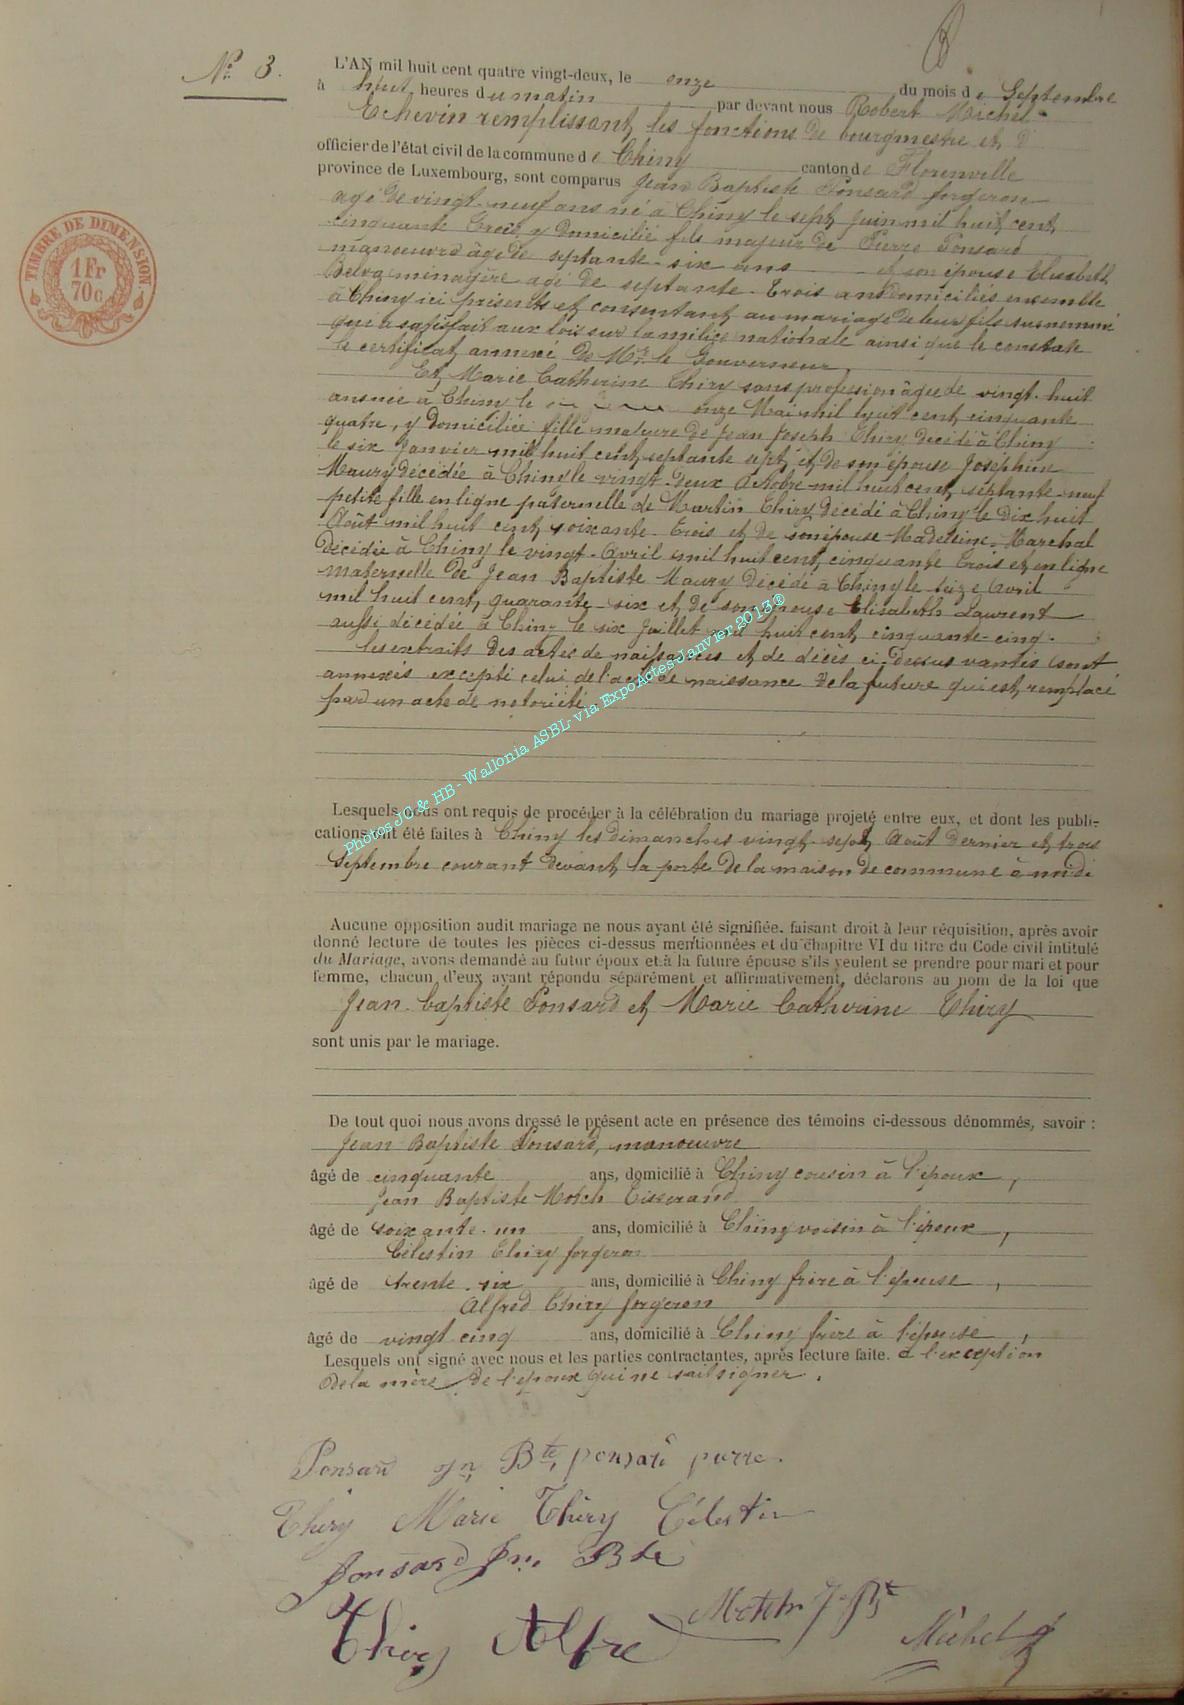 N° 3.
L'AN mil huit cent quatre vingt-deux, le onze du mois de Septembre
à huit heures du matin par devant nous Robert Michel
Echevin remplissant les fonctions de bourgmestre et d'
officier de l'état civil de la commune de Chiny canton de Florenville
province de Luxembourg, sont comparus Jean Baptiste Ponsard forgeron
agé de vingt-neuf ans né à Chiny le sept juin mil huit cent
cinquante trois, y domicilié fils majeur de Pierre Ponsard
manoeuvre âgé de septante-six ans et son épouse Elisabeth
ménagère agé de septante-trois ans domiciliés ensemble
à Chiny ici présents et consentant au mariage de leur fils susnommé
qui a satisfait aux lois sur la milice nationale ainsi que le constate
le certificat annexé de Mr le Gouverneur
Et Marie Catherine Thiry sans profession âgée de vingt-huit
ans née à Chiny le onze Mai mil huit cent cinquante
quatre, y domiciliée fille majeure de Jean Joseph Thiry décédé à Chiny
le six Janvier mil huit cent septante sept et de son épouse Joséphine
Maury décédée à Chiny le vingt-deux Octobre mil huit cent septante-neuf
petite fille en ligne paternelle de Martin Thiry décédé à Chiny le dix huit
Août mil huit cent soixante-trois et de son épouse Madeleine Marchal
décédée à Chiny le vingt-Avril mil huit cent cinquante trois et en ligne
maternelle de Jean Baptiste Maury décédé à Chiny le seize Avril
mil huit cent quarante-six et de son épouse Elisabeth Laurent
aussi décédée à Chiny le six Juillet mil huit cent cinquante-cinq.
Les extraits des actes de naissances et de décès ci-dessus vantés sont
annexés excepté celui de l'acte de naissance de la future qui est remplacé
par un acte de notoriété.
Lesquels nous ont requis de procéder à la célébration du mariage projeté entre eux, et dont les publi-
cations ont été faites à Chiny les dimanches vingt-sept Août dernier et trois
Septembre courant devant la porte de la maison de commune à midi
Aucune opposition audit mariage ne nous ayant été signifiée, faisant droit à leur réquisition, après avoir
donné lecture de toutes les pièces ci-dessus mentionnées et du chapitre VI du titre du Code civil intitulé
du Mariage, avons demandé au futur époux et à la future épouse s'ils veulent se prendre pour mari et pour
femme, chacun d'eux ayant répondu séparément et affirmativement, déclarons au nom de la loi que
Jean-Baptiste Ponsard et Marie Catherine Thiry
sont unis par le mariage.
De tout quoi nous avons dressé le présent acte en présence des témoins ci-dessous dénommés, savoir :
Jean Baptiste Ponsard, manoeuvre
âgé de cinquante ans, domicilié à Chiny cousin à l'époux,
Jean Baptiste Motch Tisserand
âgé de soixante-un ans, domicilié à Chiny voisin à l'époux,
Célestin Thiry forgeron
âgé de trente-six ans, domicilié à Chiny frère à l'épouse,
Alfred Thiry forgeron
âgé de vingt cinq ans, domicilié à Chiny frère à l'épouse,
Lesquels ont signé avec nous et les parties contractantes, après lecture faite. à l'exception
de la mère de l'époux qui ne sait signer.
Ponsard Jn Bte ponsard pierre.
Thiry Marie Thiry Célestin
ponsard Jn Bte
Thiry Alfred Motch J-Bte Michel
TIMBRE DE DIMENSION
1 Fr
70 c
Photos JC & HB - Wallonia ASBL via ExpoActes-Janvier 2013®